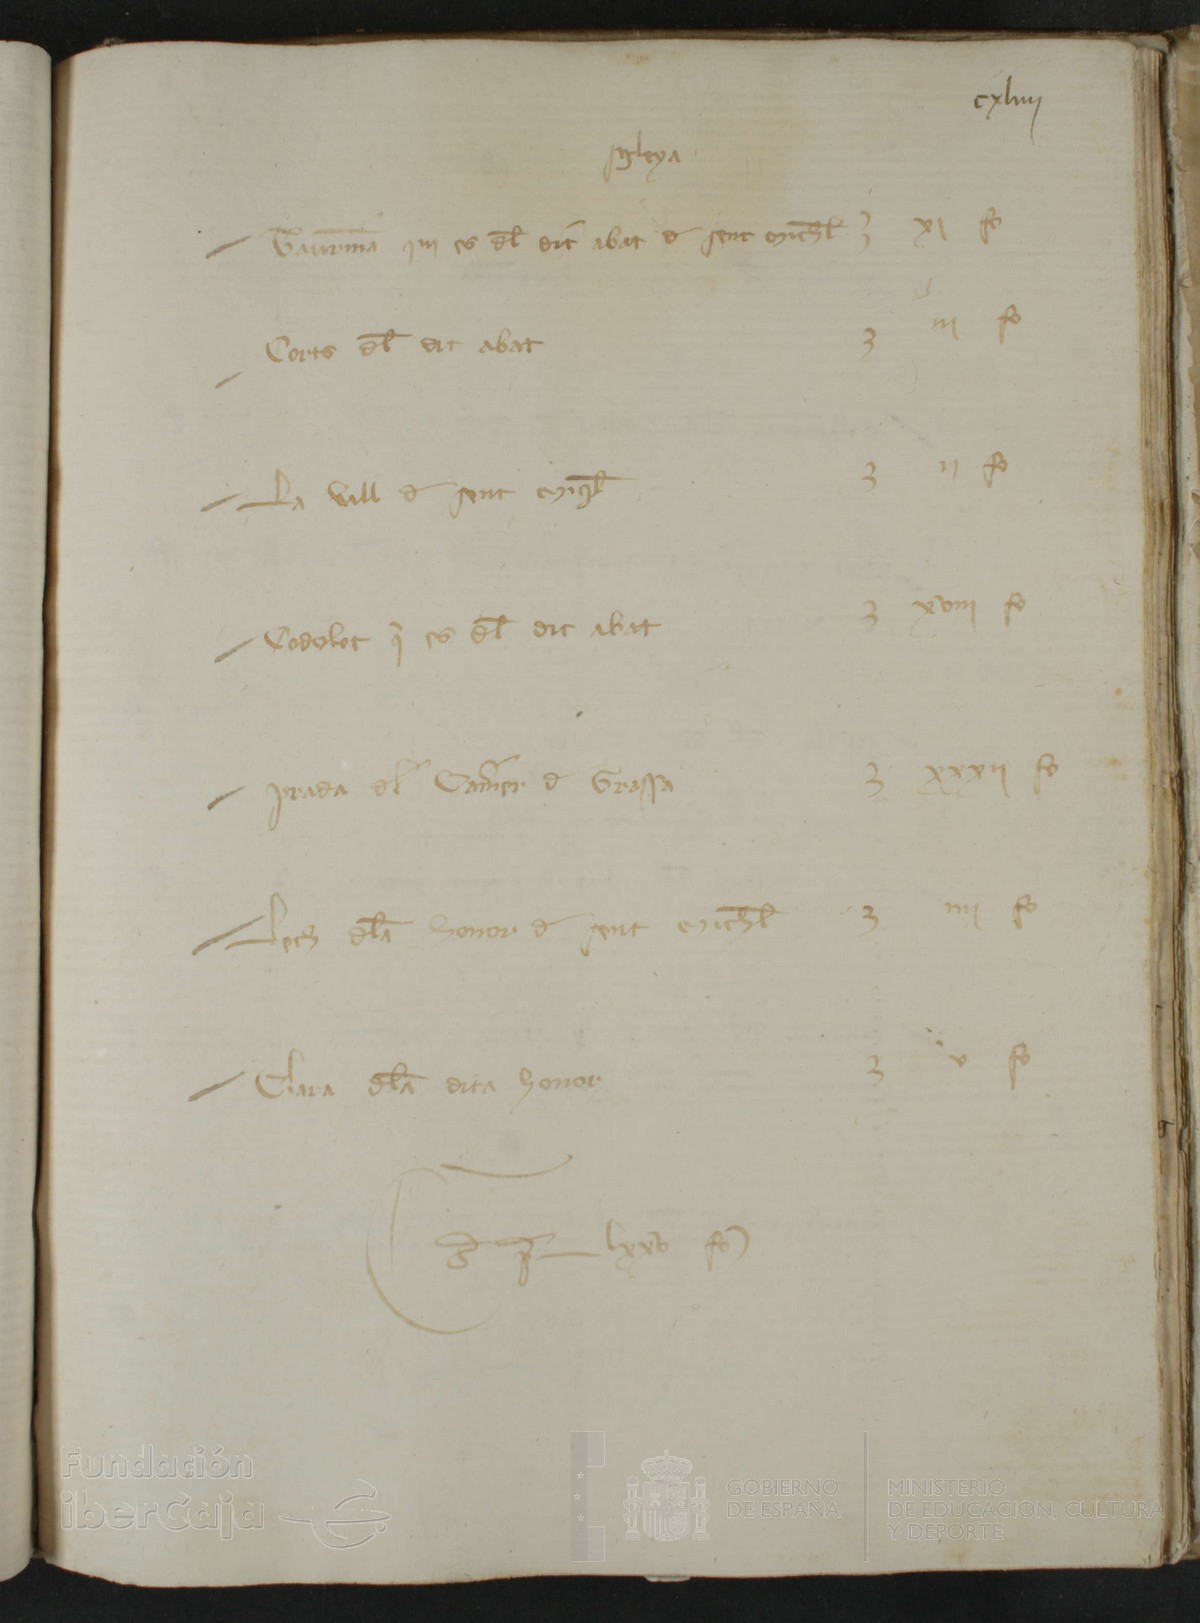 cxliiij
sgleya
Taurinia qui es dl dit abat d sent michl 3 xi fo
Corts dl dit abat 3 iii fo
La vall d sent miql 3 ii fo
Codolet q es dl dit abat 3 xviii fo
prada dl Camrer d Grassa 3 xxxii fo
Lech dla honor d sent michl 3 iiii fo
Clara dla dita honor 3 v fo
lxxv fo
Fundación
iberCaja
GOBIERNO
DE ESPAÑA
MINISTERIO
DE EDUCACIÓN, CULTURA
Y DEPORTE